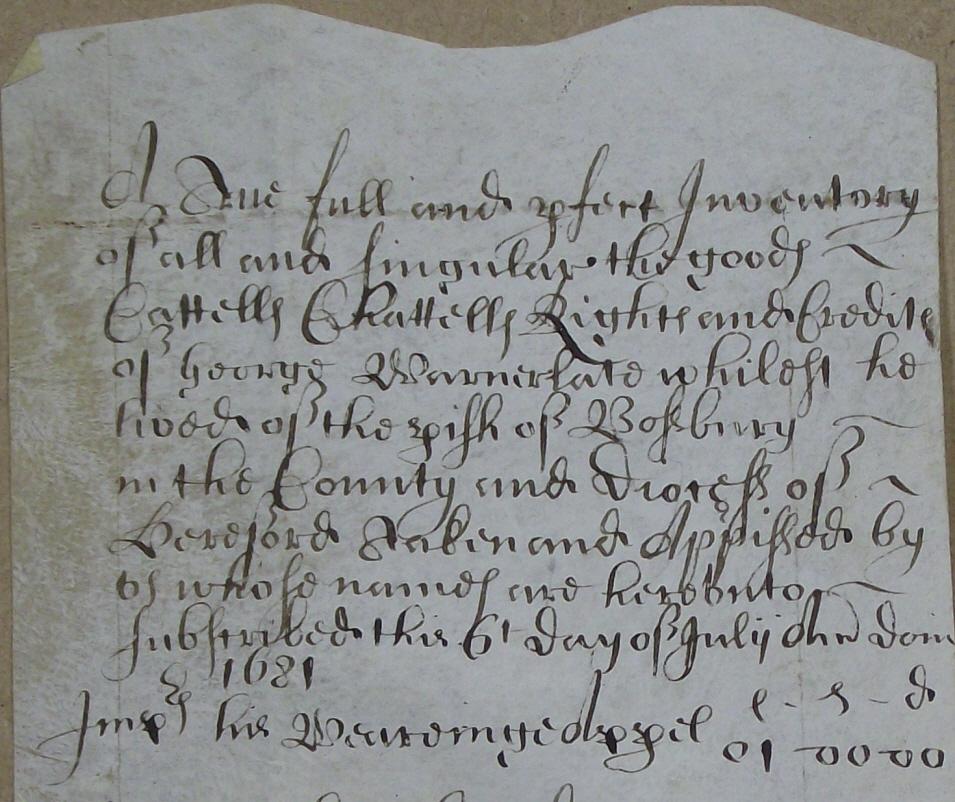 A True full and pfect Inventory
of all and singular the goods
Cattells Chattells Rights and Credits
of George Warner late whilest he
lived of the pish of Bosbury
in the County and Diocess of
Hereford Taken and Appissed by
us whose names are hereunto
subscribed this 6t Day of Julij Ann Dom
1681
l - s - d
Imprs his Weareinge Appel 01 00 00